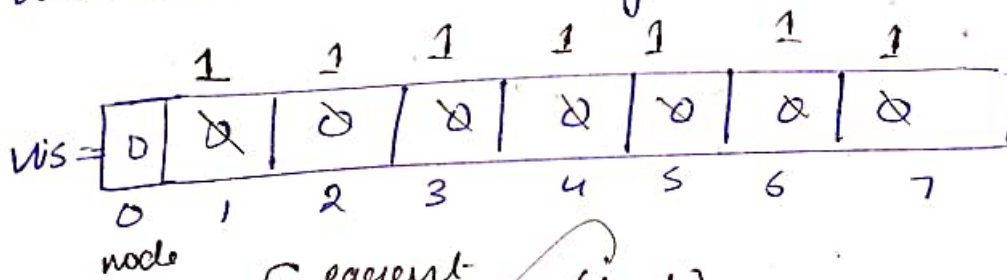 1 1 1 1 1 1 1
vis = 0 0 0 0 0 0 0 0
0 1 2 3 4 5 6 7
node
parent